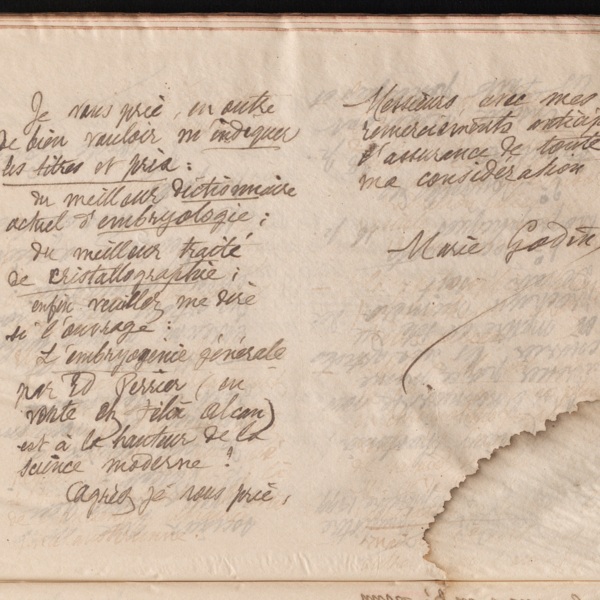 Je vous prie, en outre
de bien vouloir m'indiquer
les titres et prix :
du meilleur dictionnaire
actuel d'embryologie ;
du meilleur traité
de cristallographie ;
enfin veuillez me dire
si l'ouvrage :
L'embryogénie générale
par Ed Perrier (en
vente ch Félix Alcan)
est à la hauteur de la
science moderne ?
Agréez je vous prie,
Messieurs avec mes
remerciements anticip
l'assurance de toute
ma considération
Marie Godin